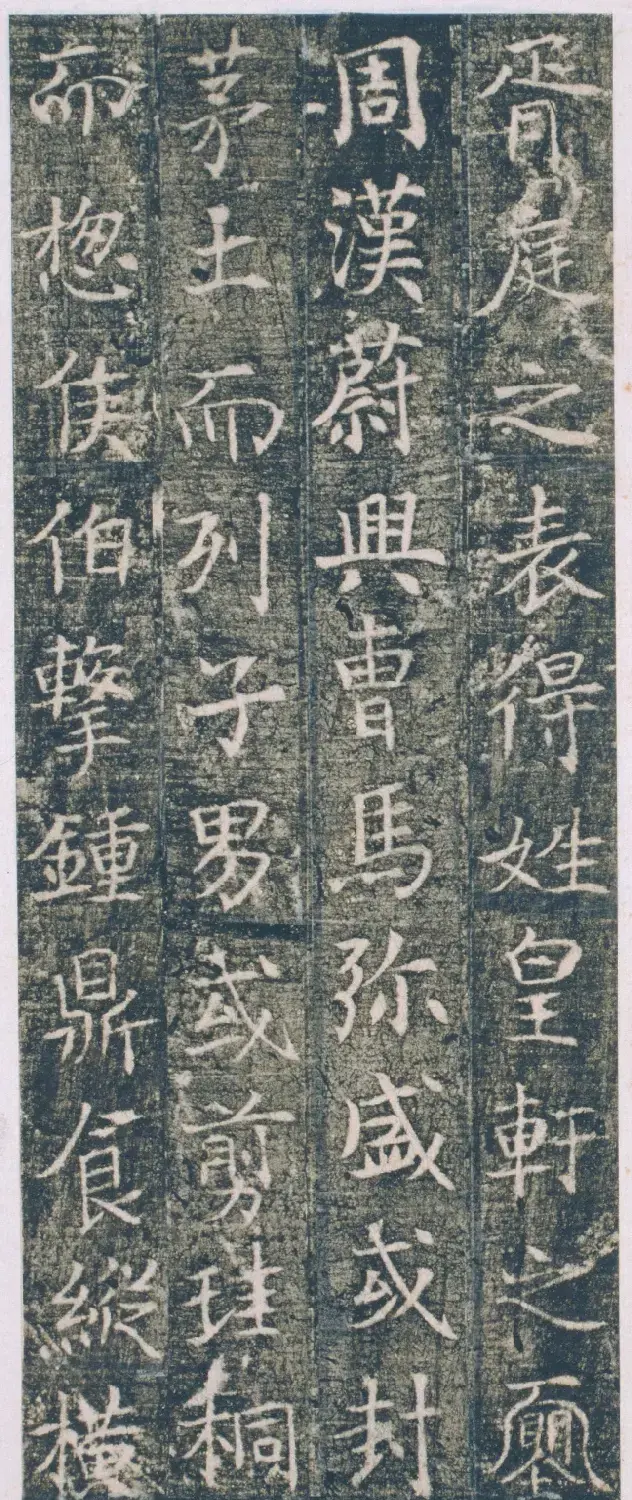 胥庭之表得姓皇軒之
周漢蔚興曹馬弥盛或封
茅土而列子男或剪珪桐
而惣侯伯擊鍾鼎食縱橫